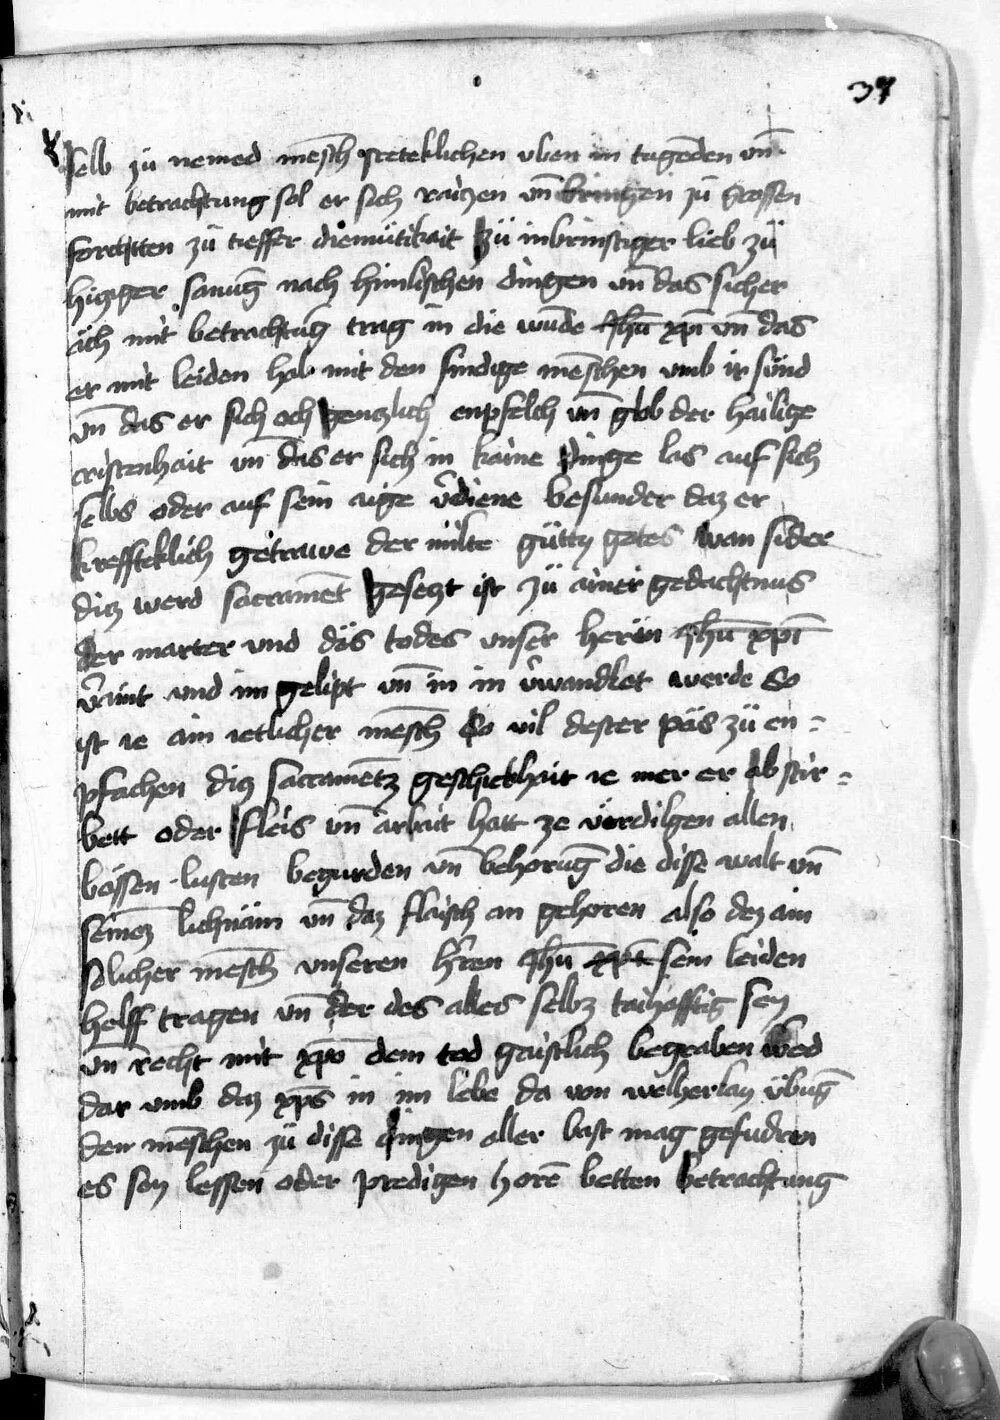 37
selb zu nemed mēsch steteklichen vben im tugēden vn̄
mit betrachtung sol er sich raitzen vn̄ bringen zu grossen
forchtten zu tieffer diemütikait zü inbrinstiger lieb zü
hitziger samūg nach himlischen dingen vn̄ das sicher
äch mit betrachtūg trag in die wūde Jhū xpī vn̄ das
er mit leiden hab mit den sündige mēschen vmb ir sünd
vn̄ das er sich och gentzlich enpfelch vn̄ glob der hailige
cristenhait vn̄ das er sich in kaine dinge las auf sich
selbs oder auf sein aige v̄diene besunder daz er
krefftteklich getrawe der milte gütty gotes wan sider
ditz werd sacramēt gesetzt ist zü ainer gedachtnus
der marter vnd däs todes vnser herün Jhū xpī
v̄aint vnd im gelipt vn̄ in in v̄wandlet werde So
ist ie ain ietlicher mēsch so vil dester päs zü en=
pfachen ditz sacramētz geschickhait ie mer er ab stir=
bett oder fleis vn̄ arbait hatt ze vördilgen allen
bössen lusten begurden vn̄ behorūg die disse walt vn̄
seinez lichnäm vn̄ daz flaisch an gehoren also dez ain
solicher mēsch vnseren h̄ren Jhū sein leiden
helff tragen vn̄ der des alles selbz tailhafftig sey
vn̄ recht mit xpō dem tod gaistlich begraben wed
dar vmb daz xp̄s in im lebe da von welherlay übūg
den mēschen zü disse dingen aller bast mag gefudren
es sey lessen oder predigen horē betten betrachtung